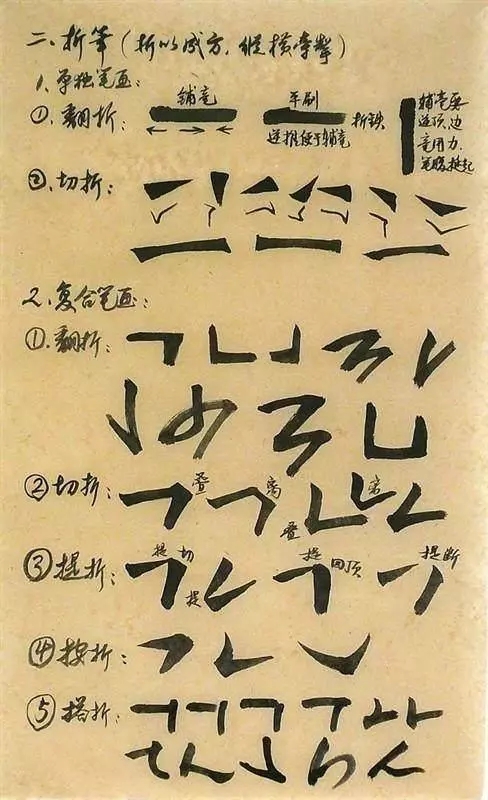 二、折笔(折以成方,纵横牵掣)
1、单独笔画:
①、翻折: 铺毫 平刷 折铁
逆推便于铺毫
铺毫要
逆顶,边
毫用力,
笔腹挺起
②、切折:
2、复合笔画:
①、翻折:
②切折: 叠 离 叠 离
③提折: 提 切 提 提 回顶 提断
④按折:
⑤搭折: